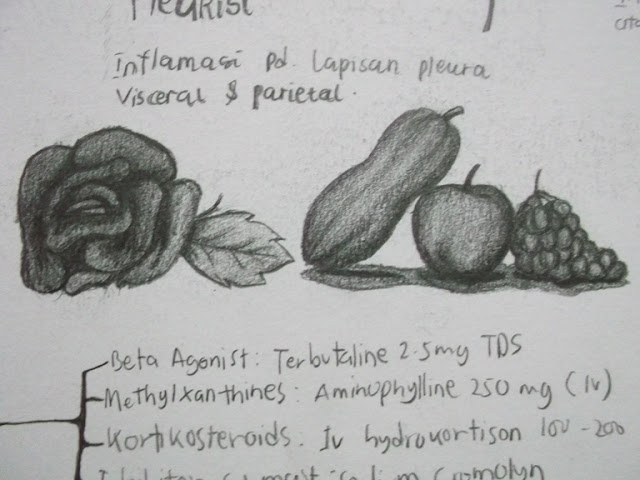 Pleurisi
Inflamasi pd. lapisan pleura
visceral & parietal.
Beta Agonist: Terbutaline 2.5mg TDS
Methylxanthines: Aminophylline 250 mg (IV)
Kortikosteroids: IV hydrokortison 100-200